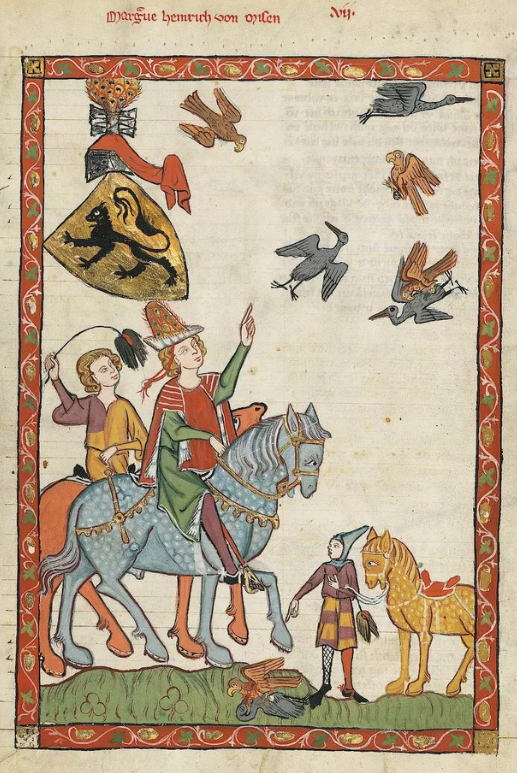 Margᵃue heinrich von misen ·vij·